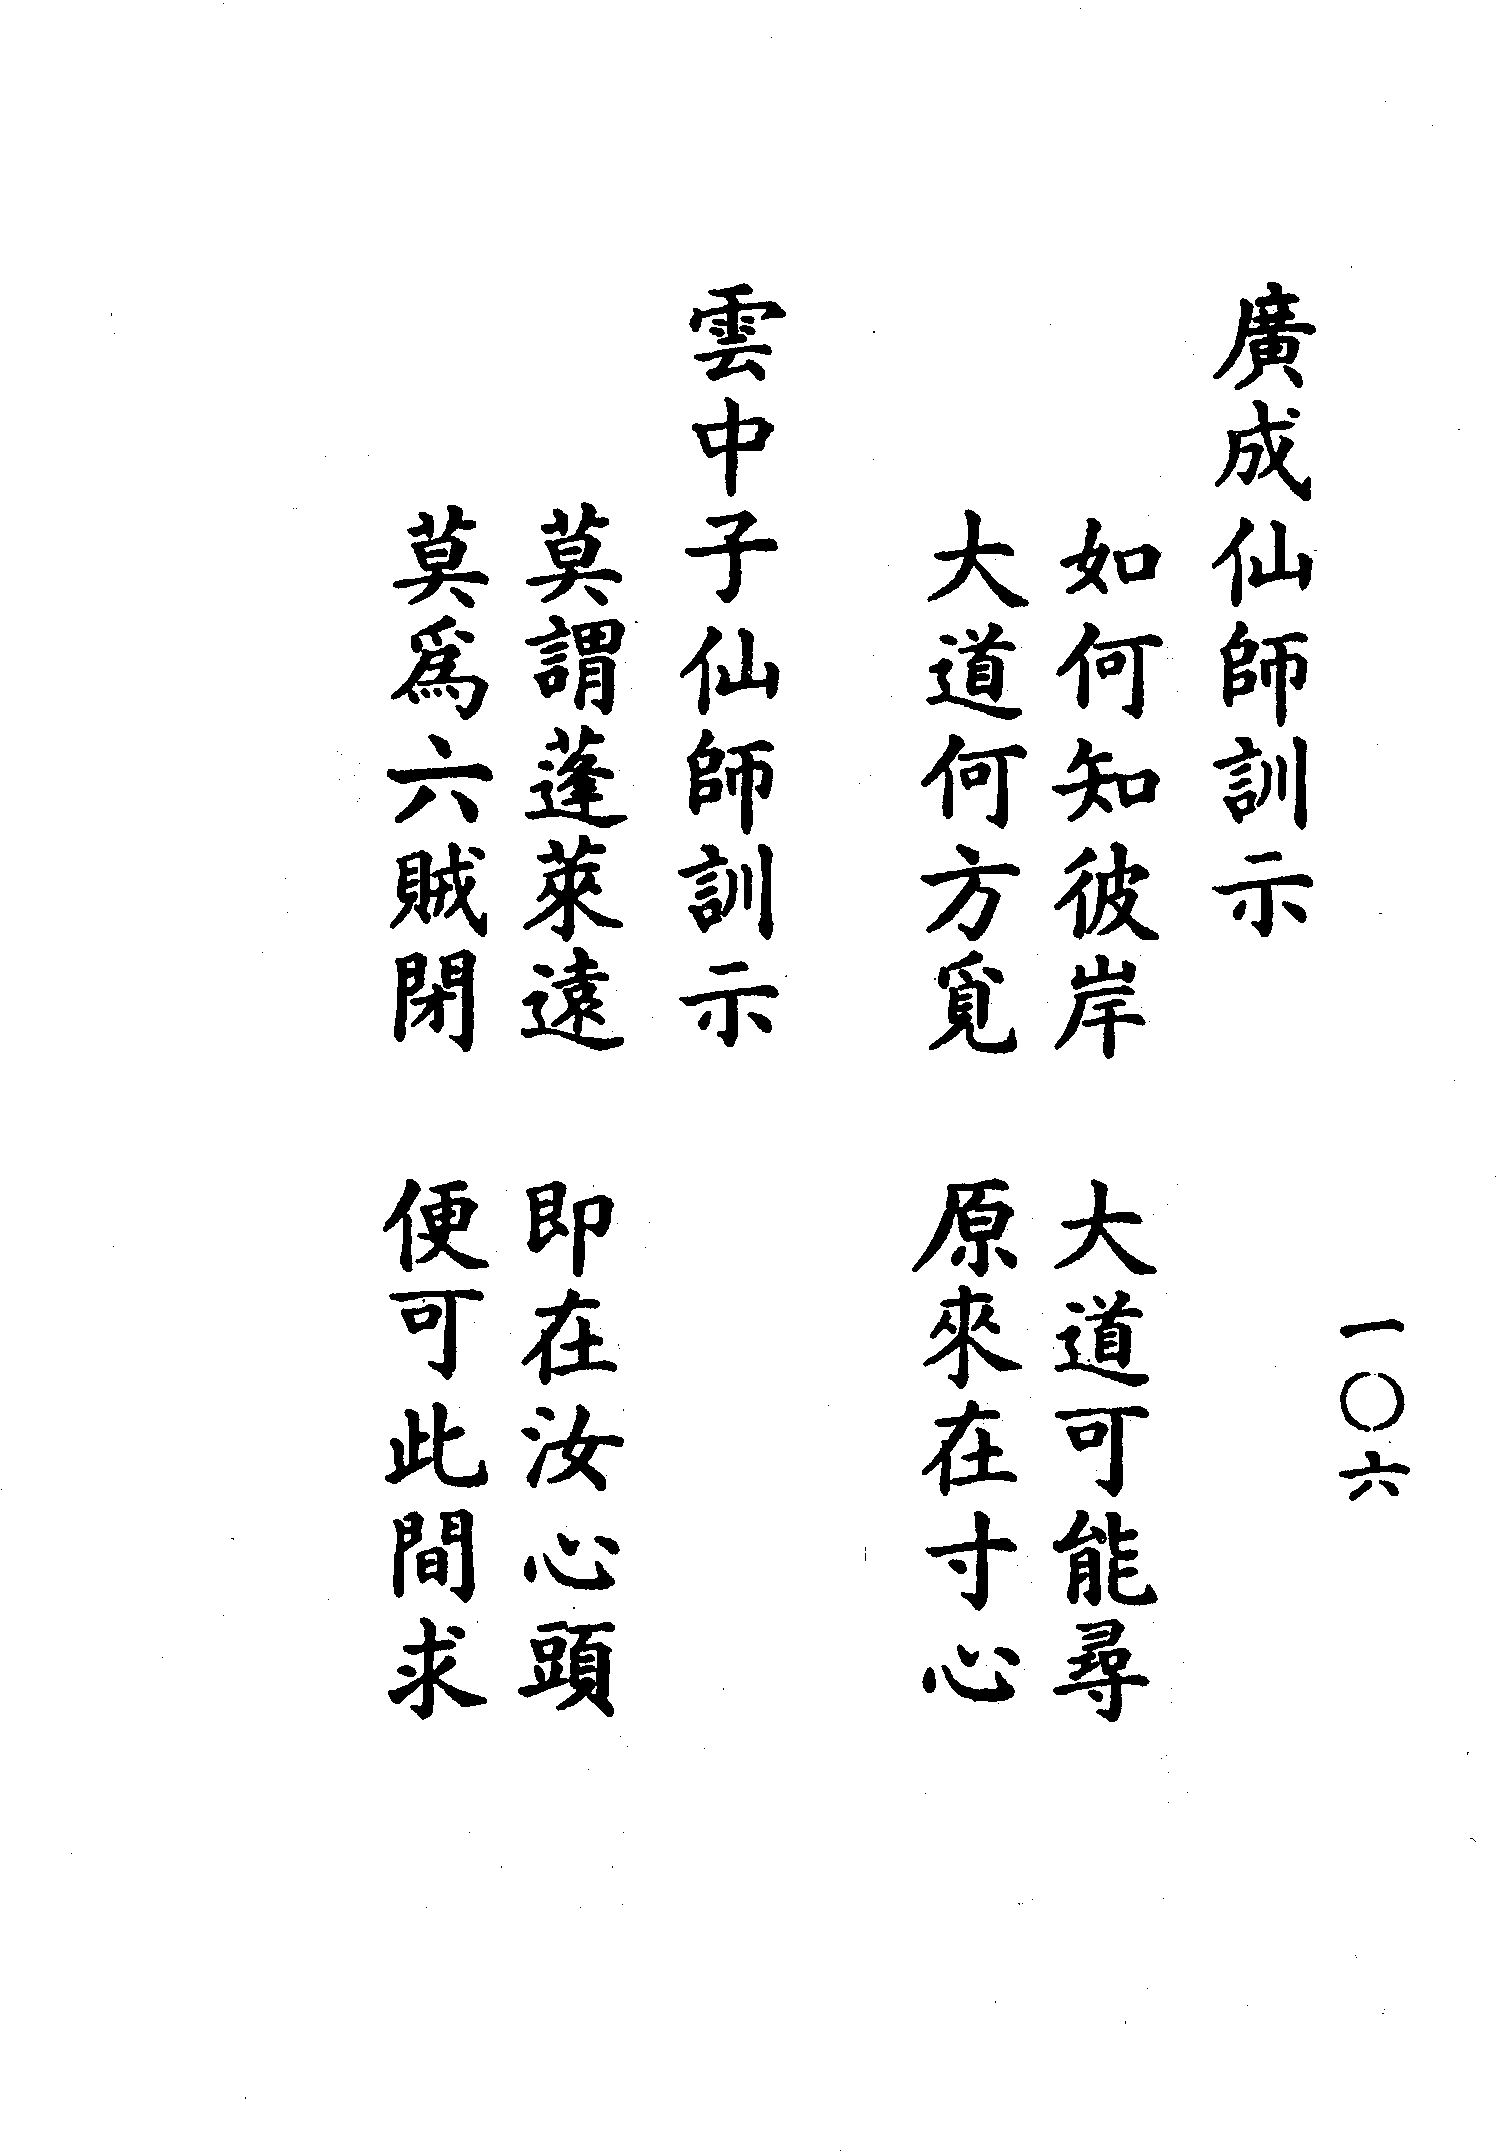 一〇六
廣成仙師訓示
如何知彼岸　大道可能尋
大道何方覓　原來在寸心
雲中子仙師訓示
莫謂蓬萊遠　即在汝心頭
莫爲六賊閉　便可此間求